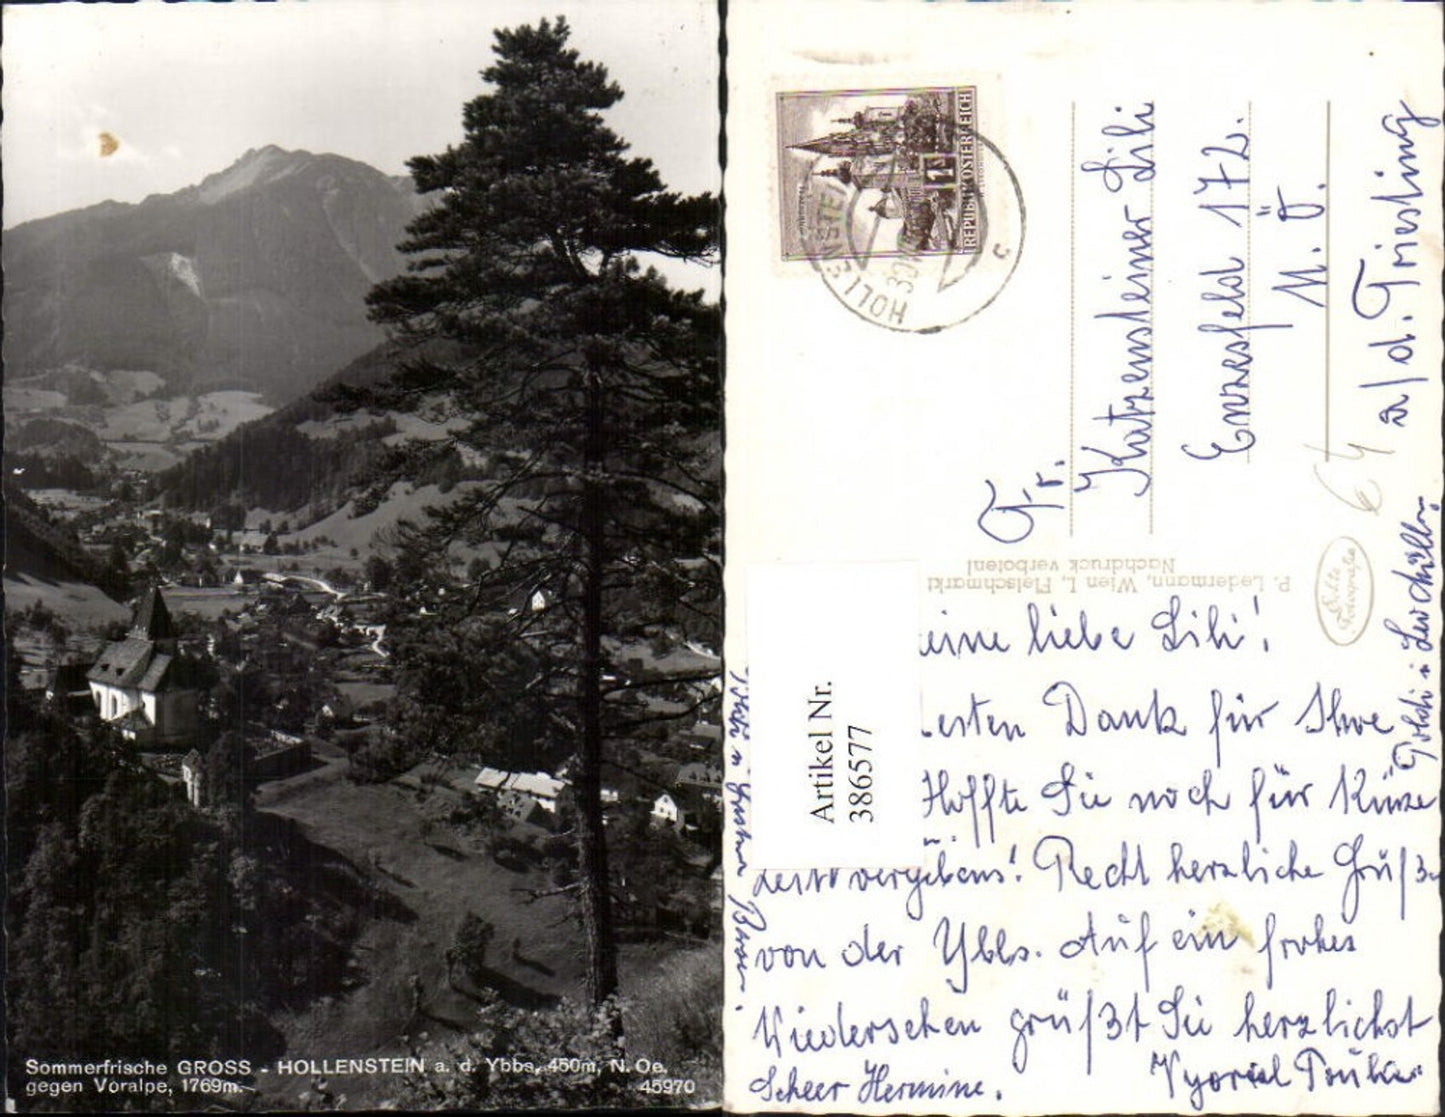 Sommerfrische GROSS - HOLLENSTEIN a. d. Ybbs, 450m, N. Oe.
gegen Voralpe, 1769m.
45970
REPUBLIK ÖSTERREICH
1
HOLLENSTEIN
c
Fr.
Katzensteiner Lili
Enzesfeld 172.
N. Ö.
a/d. Triesting
64
P. Ledermann, Wien I., Fleischmarkt
Nachdruck verboten!
Echte
Fotografie
Artikel Nr.
386577
eine liebe Lili!
esten Dank für Ihre
Hoffte Sie noch für Kürze
vergebens! Recht herzliche Grüße
von der Ybbs. Auf ein frohes
Wiedersehen grüßt Sie herzlichst
Scheer Hermine.